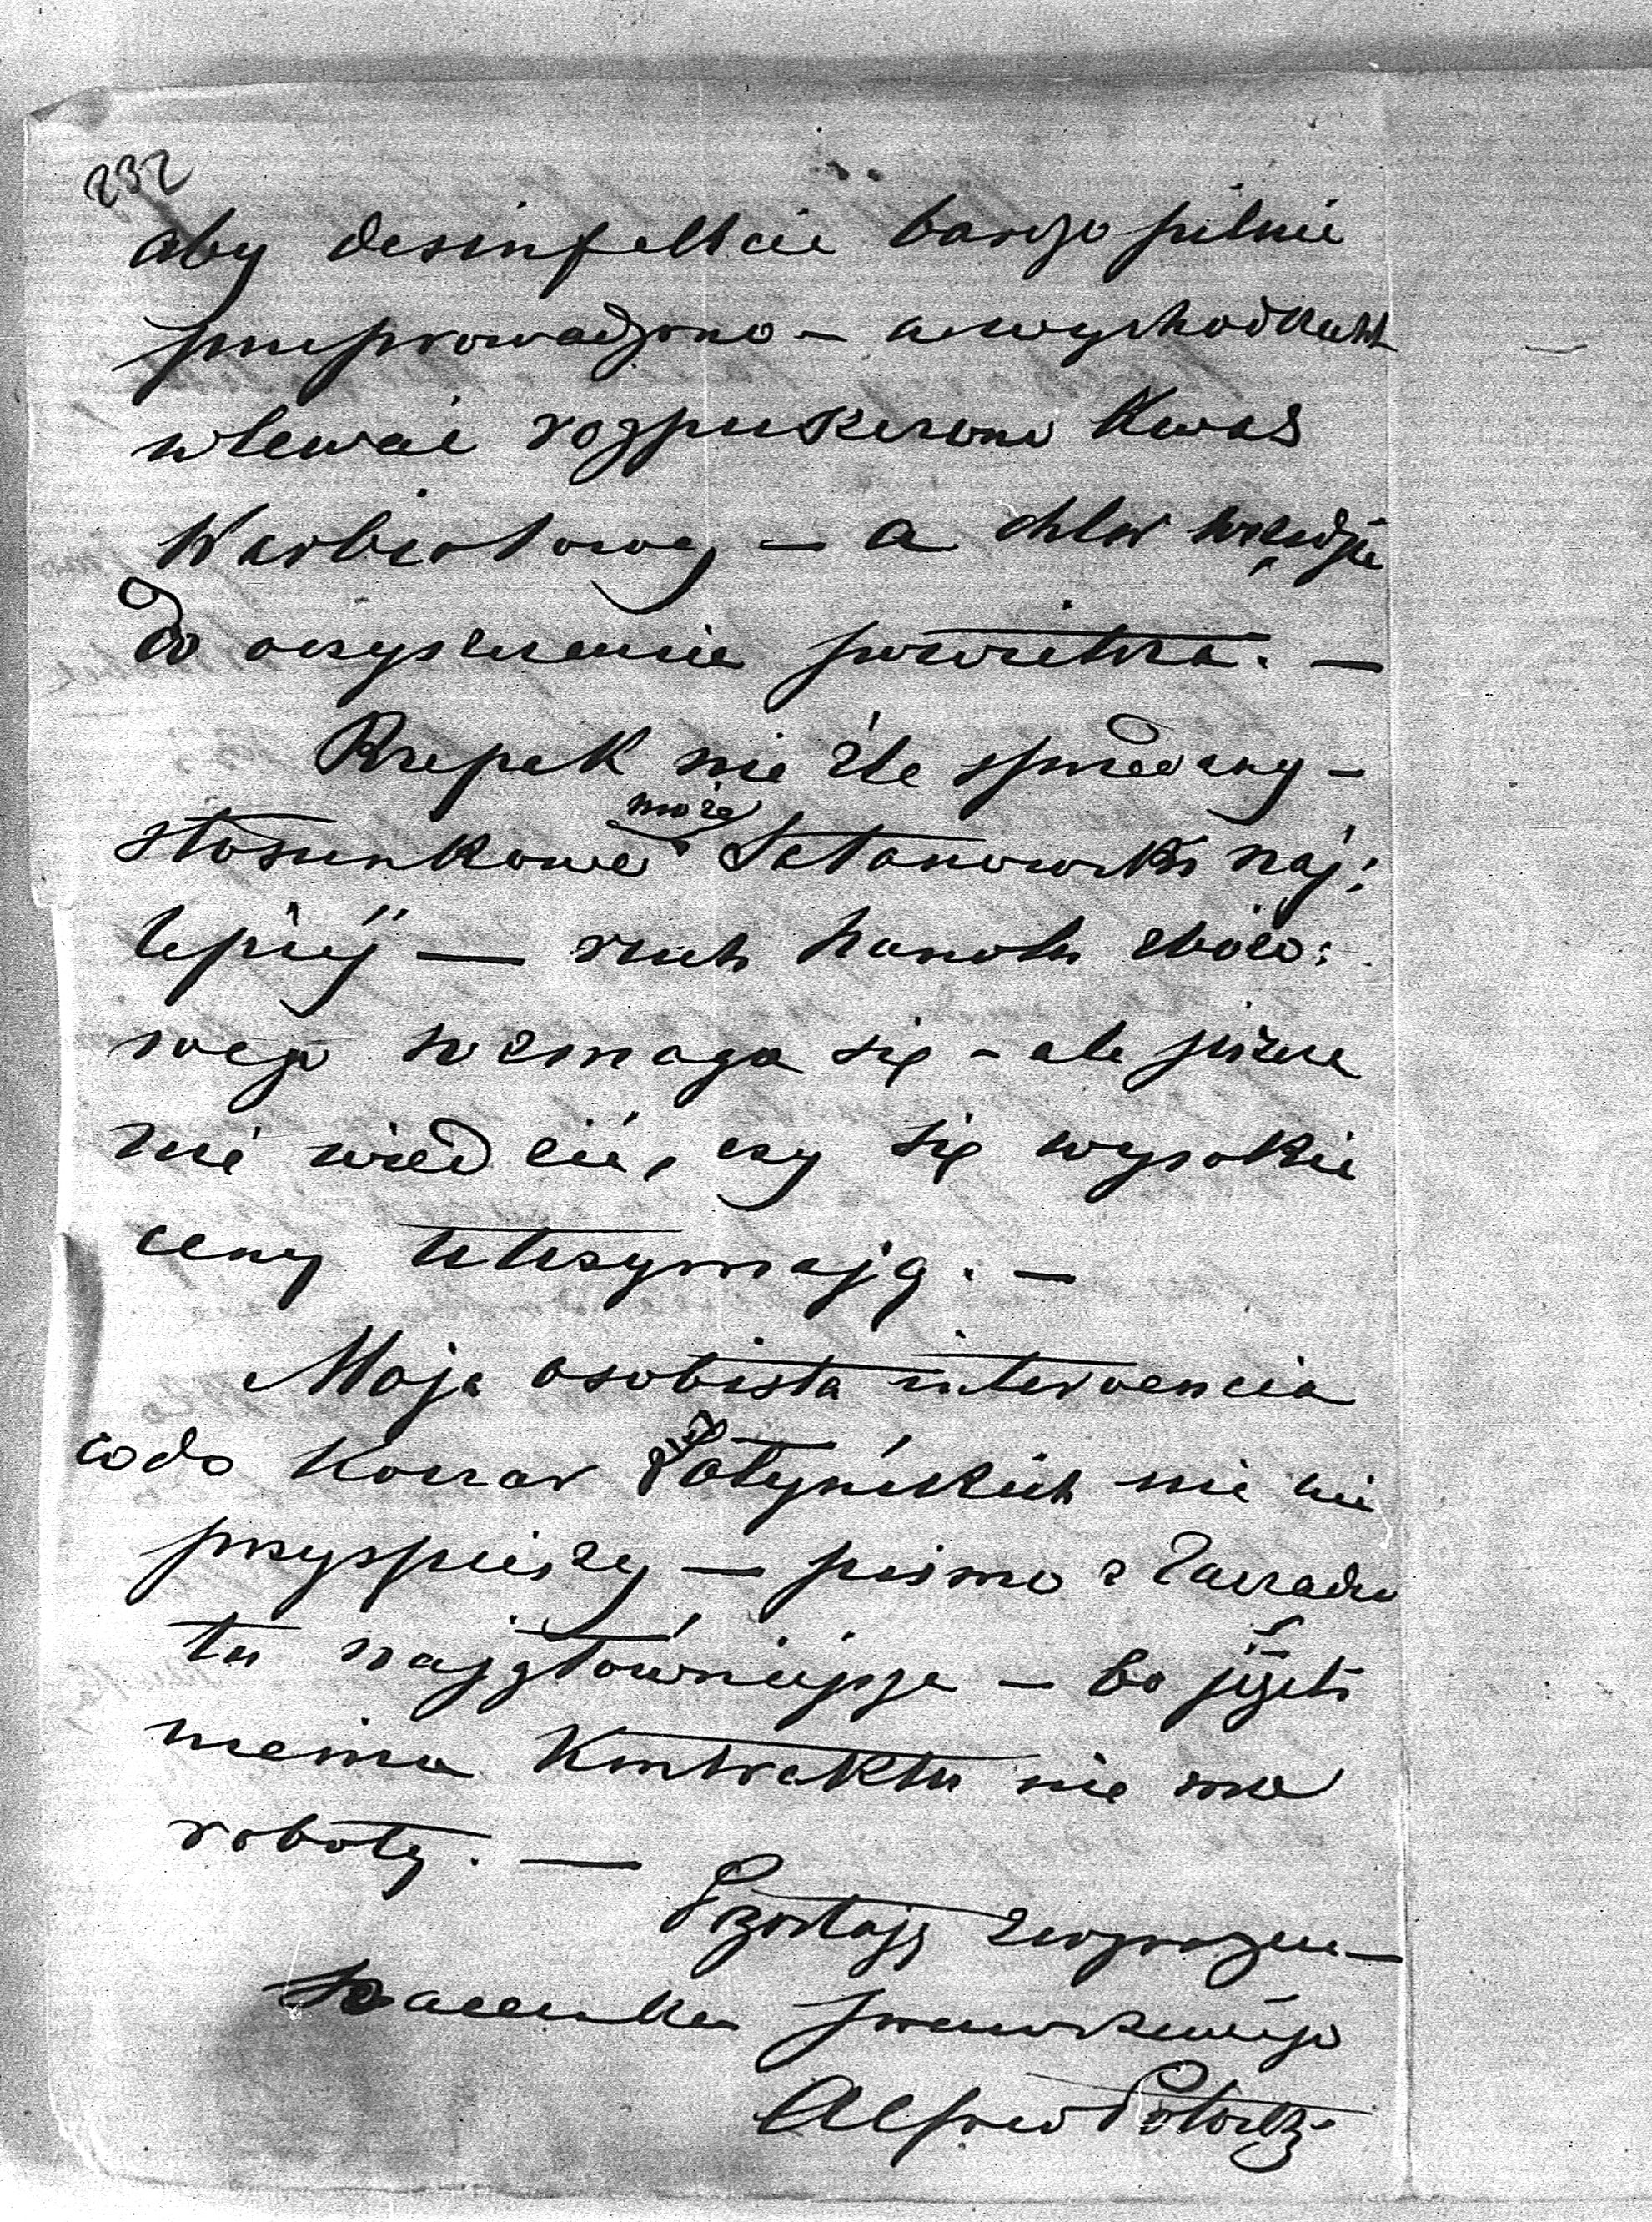 232
aby desinfekcie bardzo pilnie
przeprowadzono – a w wychodkach
wlewać rozpuszczono kwas
Karbolowy – a chlor wszędzie
do oczyszczenia powietrza. —
Rzepak nie źle sprzedany –
może
stosunkowo Satanowski naj:
lepiej — ruch handlu zbożo:
wego wzmaga się – ale jeszcze
nie wiedzieć, czy się wysokie
ceny utrzymają. —
Moja osobista intervencia
co do Koszar nic nie
przyspieszy — pismo z Zarządu
tu najgłówniejsze — bo jeżeli
niema Kontraktu nie ma
roboty. —
Pozostaję z wyrazem —
szacunku prawdziwego
Alfred Potocki